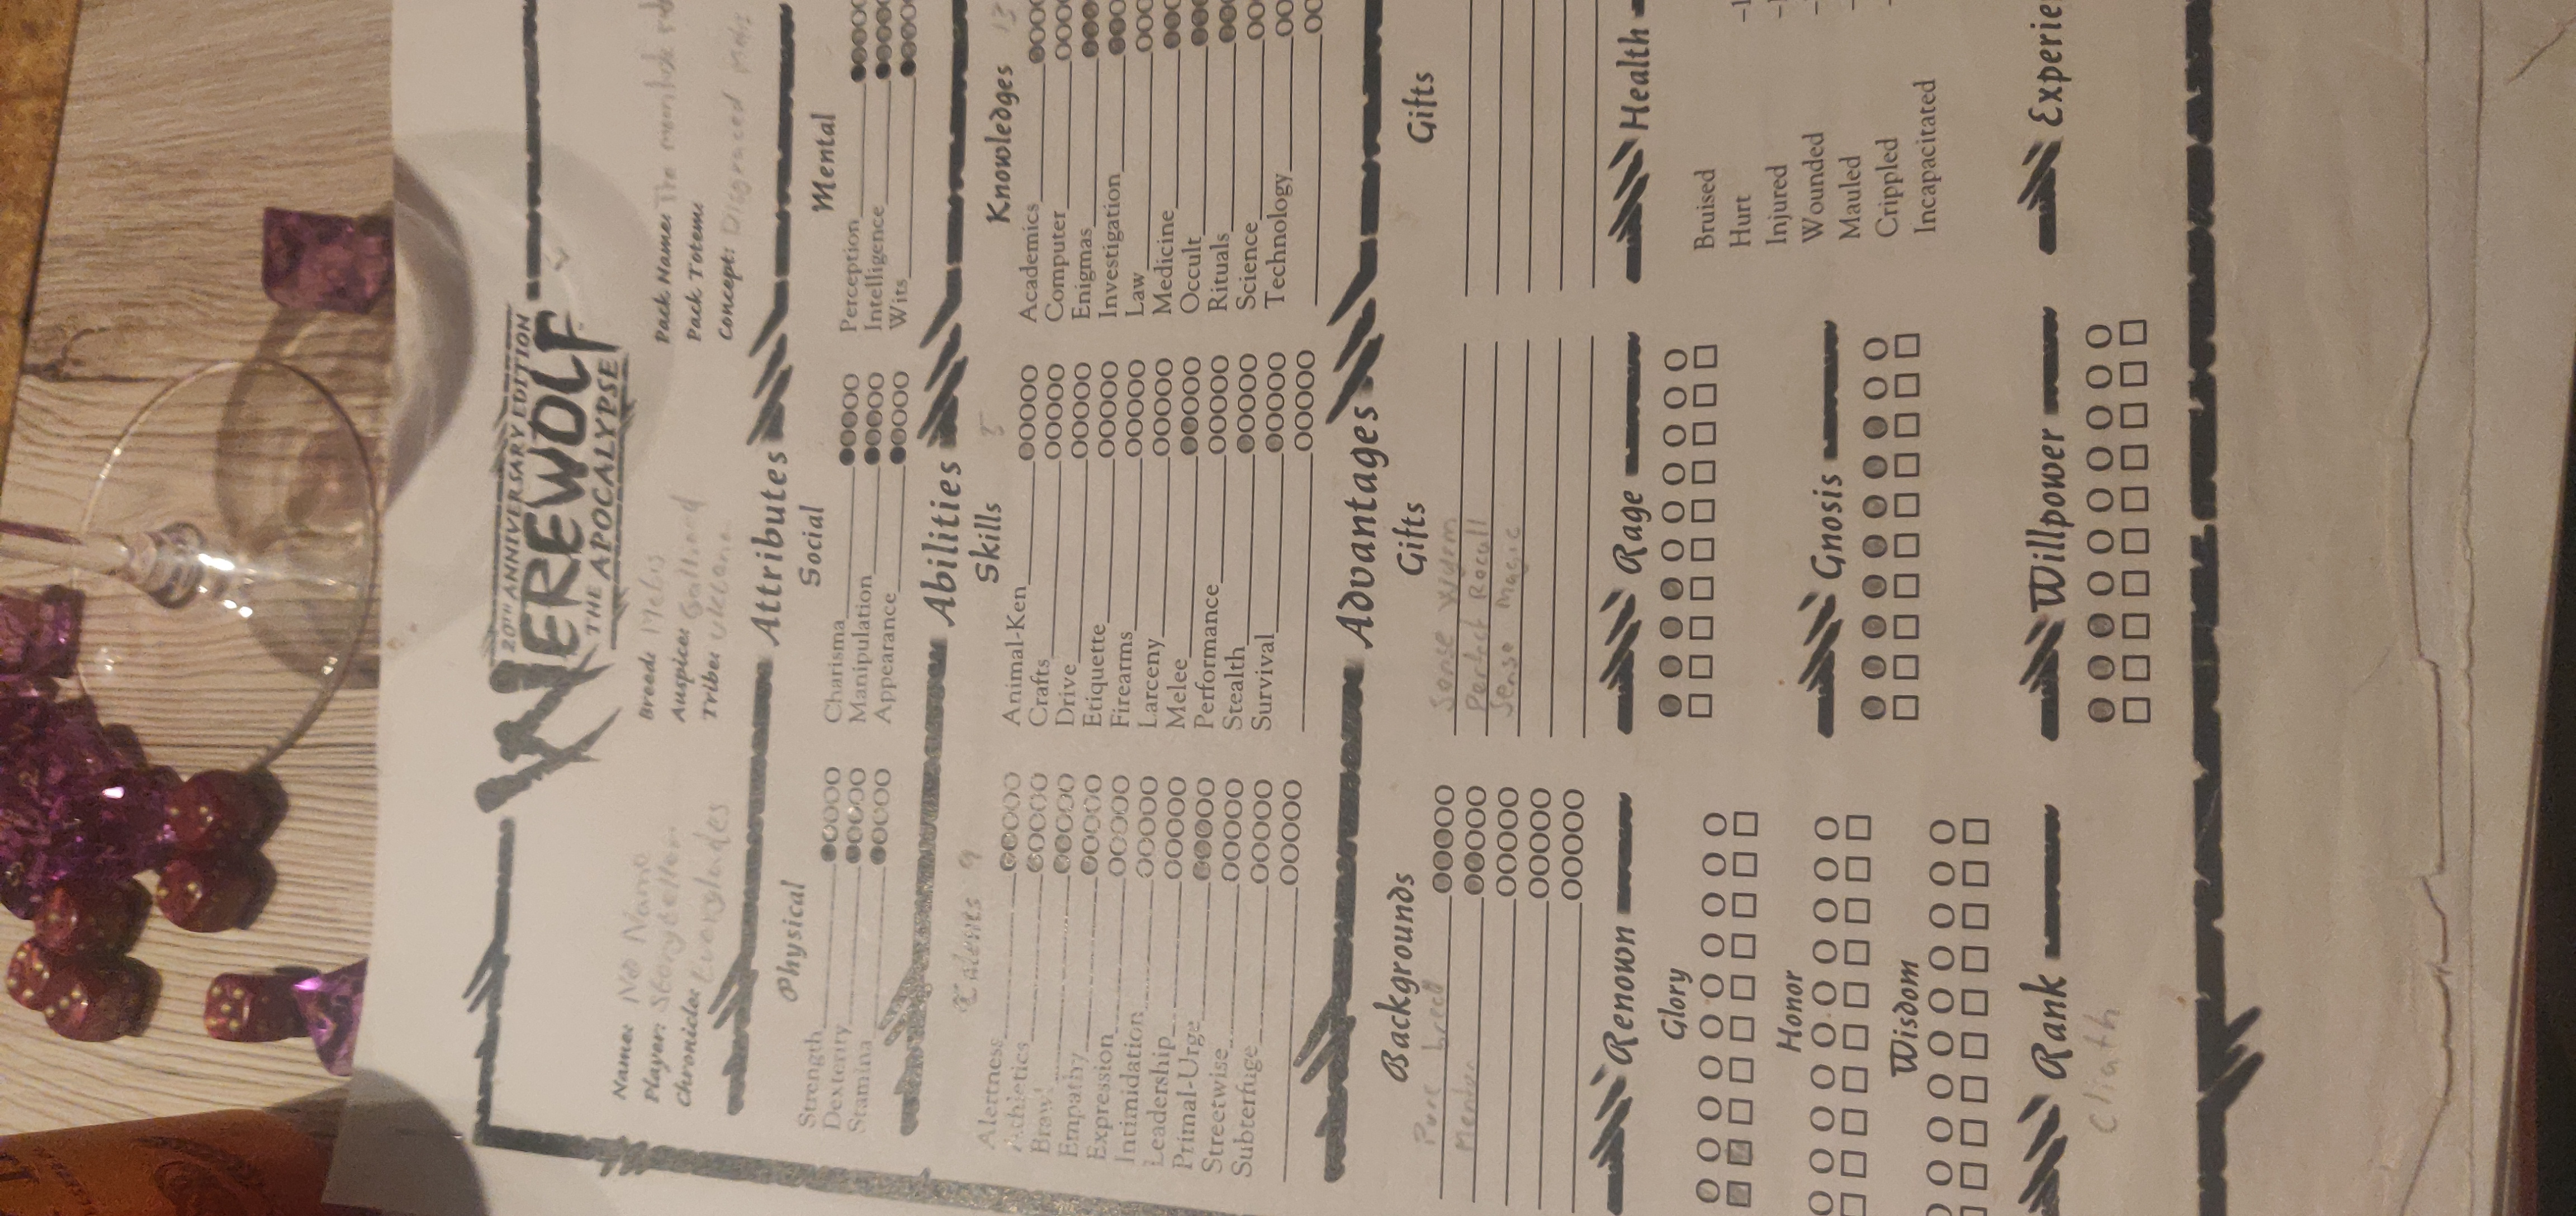 20TH ANNIVERSARY EDITION
WEREWOLF
THE APOCALYPSE
Name: No Name
Player: Storyteller
Chronicle: Everglades
Breed: Metis
Auspice: Galliard
Tribe: Uktena
Pack Name: The
Pack Totem:
Concept: Disgraced Metis
Attributes
Physical
Strength
Dexterity
Stamina
Social
Charisma
Manipulation
Appearance
Mental
Perception
Intelligence
Wits
Abilities
Talents 9
Alertness
Athletics
Brawl
Empathy
Expression
Intimidation
Leadership
Primal-Urge
Streetwise
Subterfuge
Skills 5
Animal-Ken
Crafts
Drive
Etiquette
Firearms
Larceny
Melee
Performance
Stealth
Survival
Knowledges 13
Academics
Computer
Enigmas
Investigation
Law
Medicine
Occult
Rituals
Science
Technology
Advantages
Backgrounds
Pure breed
Mentor
Gifts
Sense Wyrm
Perfect Recall
Sense Magic
Gifts
Renown
Glory
Honor
Wisdom
Rank
Cliath
Rage
Gnosis
Willpower
Health
Bruised
Hurt -1
Injured
Wounded
Mauled
Crippled
Incapacitated
Experie